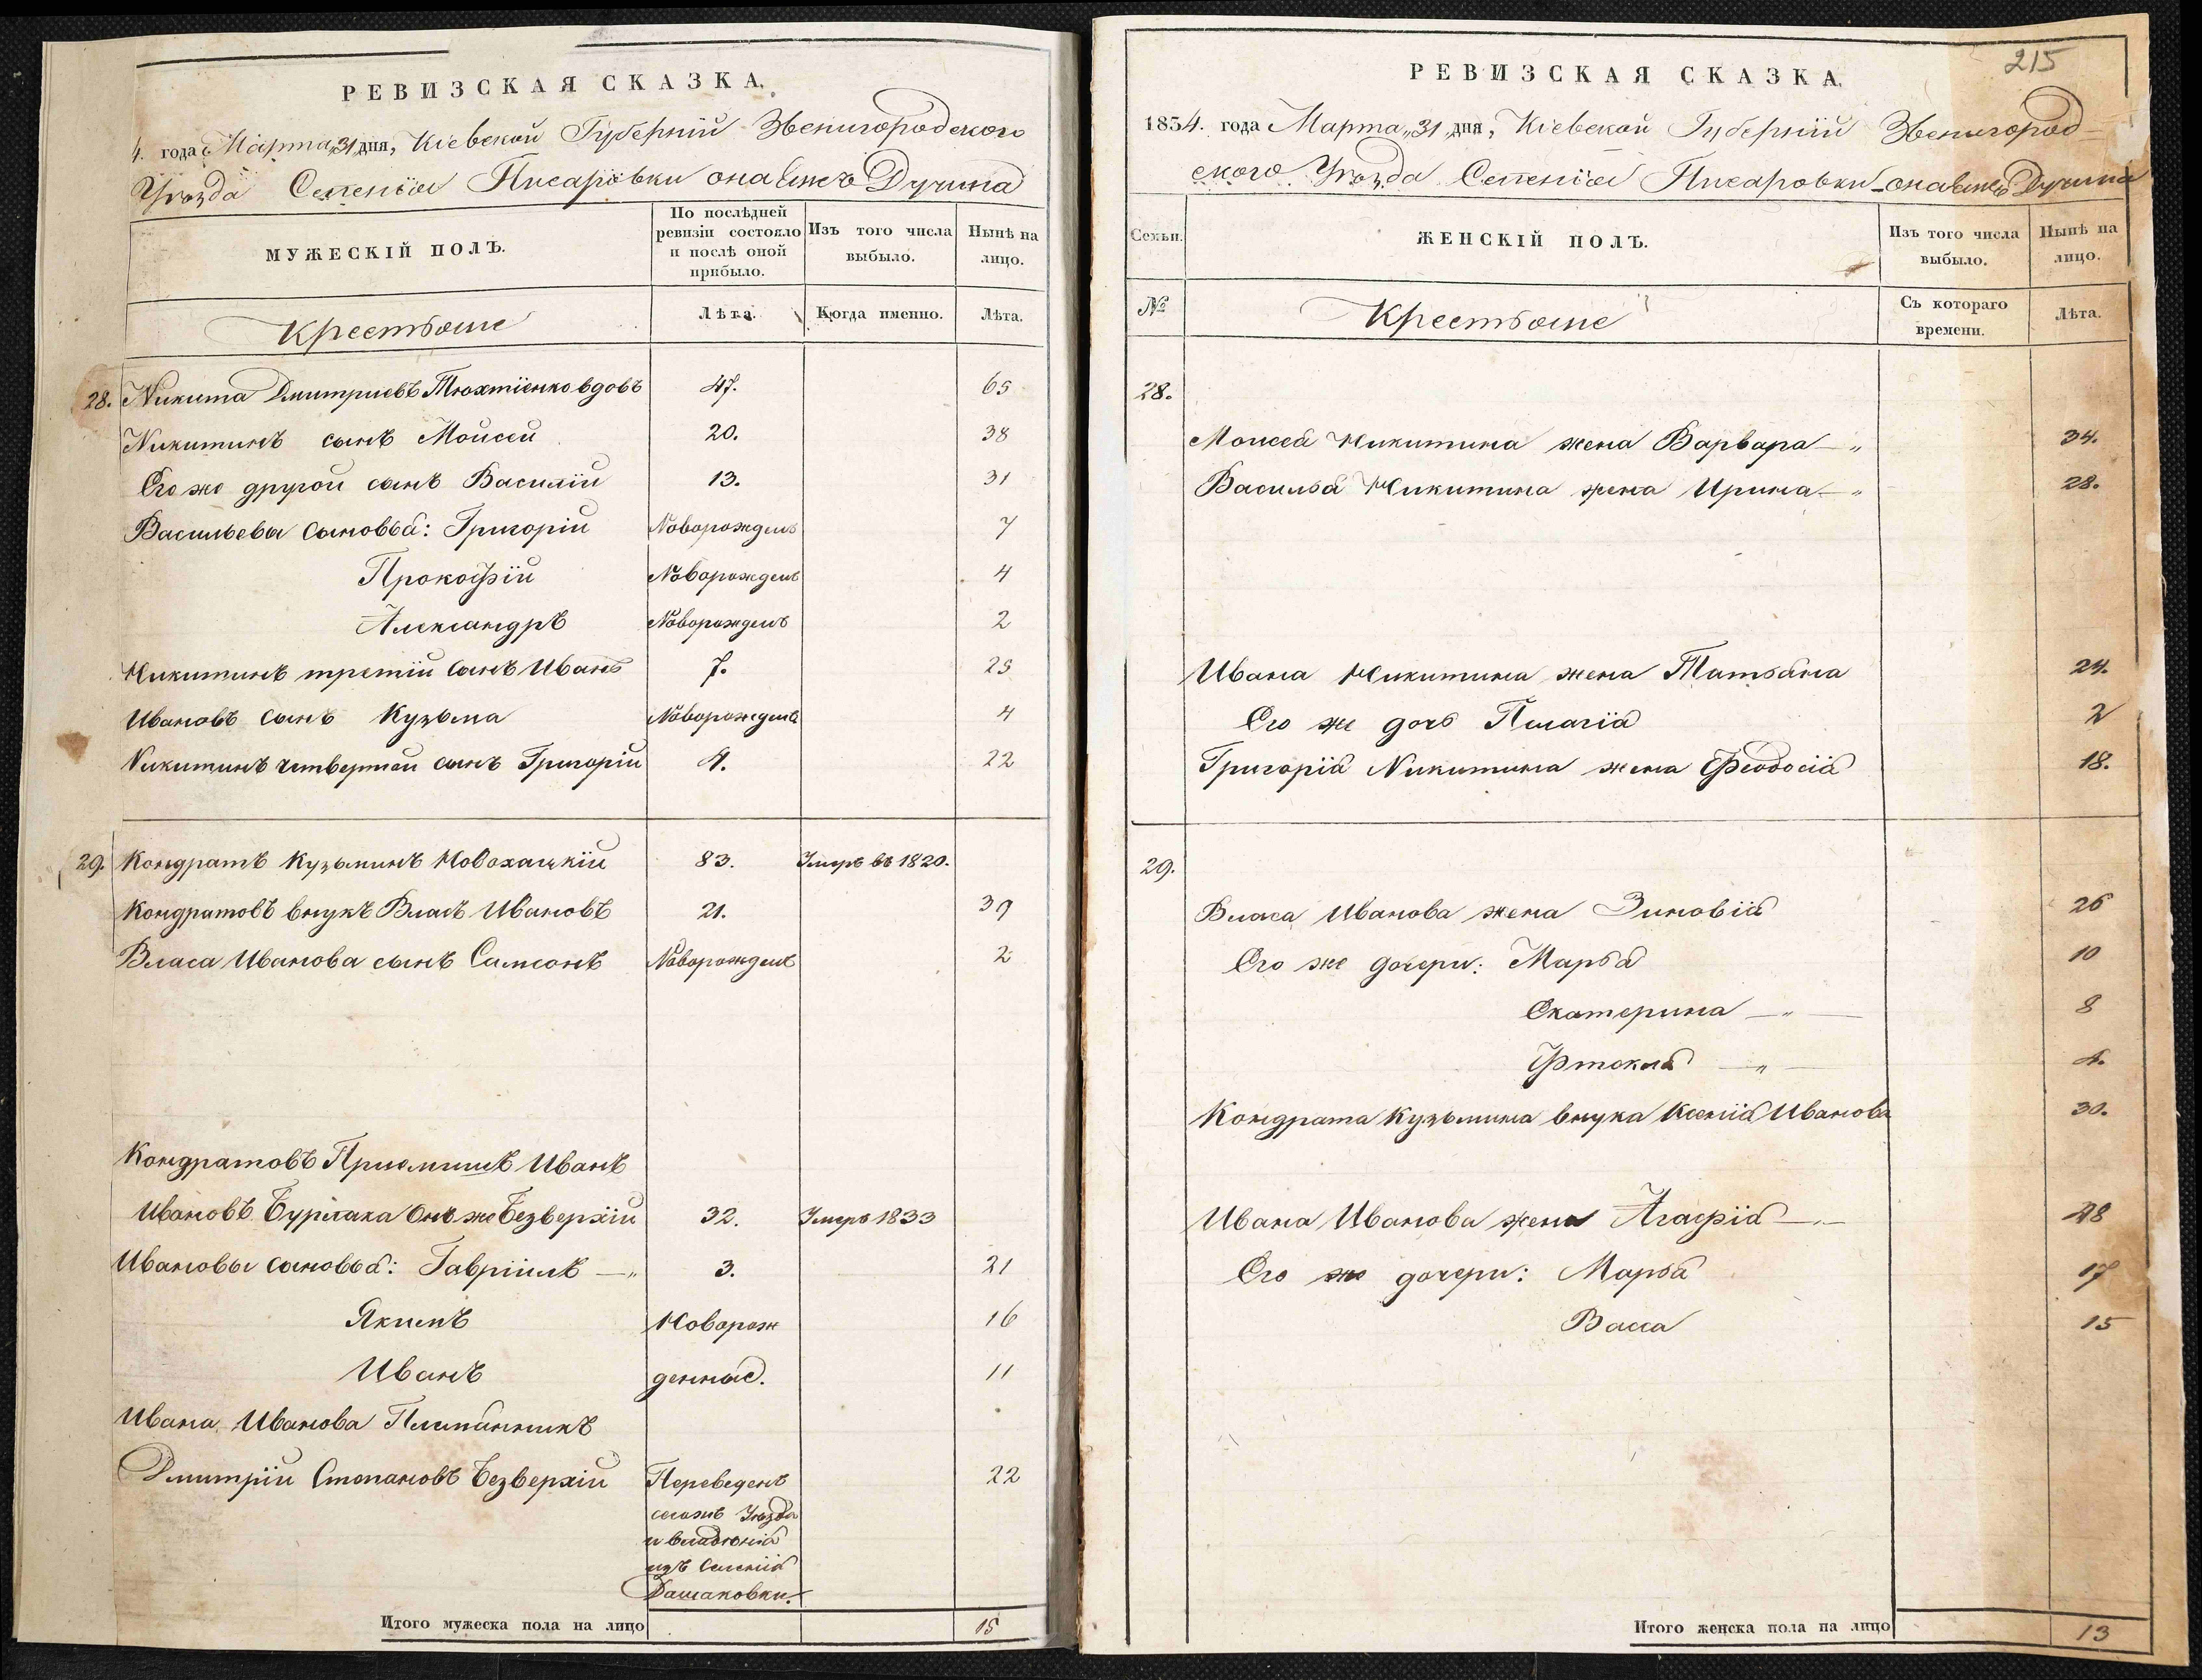 РЕВИЗСКАЯ СКАЗКА.
4. года Марта 31 дня, Кіевской Губерніи Звенигородского
Уѣзда Селенія Писаровки она жъ Дучина
МУЖЕСКІЙ ПОЛЪ.
По послѣдней ревизіи состояло и послѣ оной прибыло.
Изъ того числа выбыло.
Нынѣ на лицо.
Крестьяне
Лѣта.
Когда именно.
Лѣта.
28. Никита Дмитриевъ Тюхтіенко вдовъ 47. 65
Никитинъ сынъ Мойсей 20. 38
Его же другой сынъ Василій 13. 31
Васильевы сыновья: Григорій Новорожденъ 7
Прокофій Новорожденъ 4
Александръ Новорожденъ 2
Никитинъ третій сынъ Иванъ 7. 25
Ивановъ сынъ Кузьма Новорожденъ 4
Никитинъ четвертой сынъ Григорій 4. 22
29. Кондратъ Кузьминъ Новохацкій 83. Умеръ въ 1820.
Кондратовъ внукъ Власъ Ивановъ 21. 39
Власа Иванова сынъ Самсонъ Новорожденъ 2
Кондратовъ Приемишъ Иванъ
Ивановъ Бурлака Онъ же Безверхій 32. Умеръ 1833
Ивановы сыновья: Гавріилъ —„ 3. 21
ЯкимъНоворож 16
Иванъ денная. 11
Ивана Иванова Племянникъ
Дмитрій Степановъ Безверхій Переведенъ 22
Уѣзда
и владѣнія
изъ Селенія
Дашаковки.
Итого мужеска пола на лицо 15
215
РЕВИЗСКАЯ СКАЗКА.
1834. года Марта 31 дня, Кіевской Губерніи Звенигород-
ского Уѣзда Селенія Писаровки она жъ Дучина
Семьи.
ЖЕНСКІЙ ПОЛЪ.
Изъ того числа выбыло.
Нынѣ на лицо.
№
Крестьяне
Съ котораго времени.
Лѣта.
28.
Моисея Никитина жена Варвара —„ 34.
Василья Никитина жена Ирина —„ 28.
Ивана Никитина жена Татьяна 24.
Его же дочь Пелагія 2
Григорія Никитина жена Феодосія 18.
29.
Власа Иванова жена Зиновія 26
Его же дочери: Марья 10
Екатерина —„— 8
Фтекла —„— 4.
Кондрата Кузьмина внука Ксенія Иванова 30.
Ивана Иванова жена Агафія —„— 48
Его же дочери: Марья 17
Васса 15
Итого женска пола на лицо 13